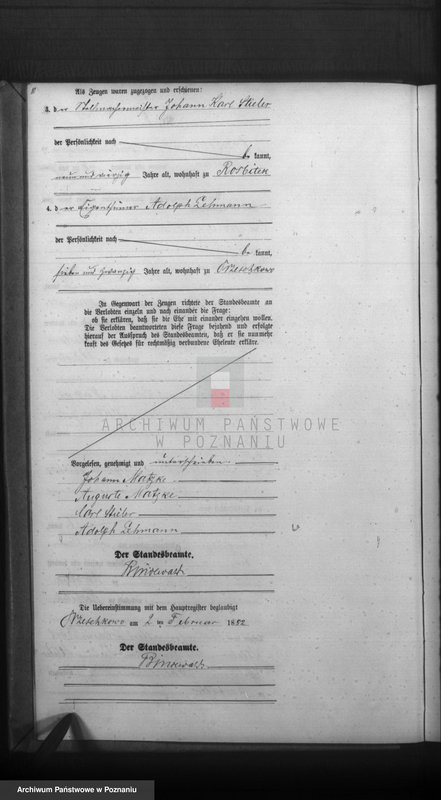 Als Zeugen waren zugezogen und erschienen:
3. der Stellmachermeister Johann Karl Stieler
der Persönlichkeit nach
be kannt,
neunundvierzig Jahre alt, wohnhaft zu
4. der Eigenthümer Adolph Lehmann
der Persönlichkeit nach
be kannt,
sieben und zwanzig Jahre alt, wohnhaft zu
In Gegenwart der Zeugen richtete der Standesbeamte an
die Verlobten einzeln und nach einander die Frage:
ob sie erklären, daß sie die Ehe mit einander eingehen wollen.
Die Verlobten beantworteten diese Frage bejahend und erfolgte
hierauf der Ausspruch des Standesbeamten, daß er sie nunmehr
kraft des Gesetzes für rechtmäßig verbundene Eheleute erkläre.
ARCHIWUM PAŃSTWOWE
W POZNANIU
Vorgelesen, genehmigt und unterschrieben.
Johann Matzke
Auguste Matzke
Carl Stieler
Adolph Lehmann
Der Standesbeamte.
Die Uebereinstimmung mit dem Hauptregister beglaubigt
am 2 ten Februar 1882
Der Standesbeamte.
Archiwum Państwowe w Poznaniu